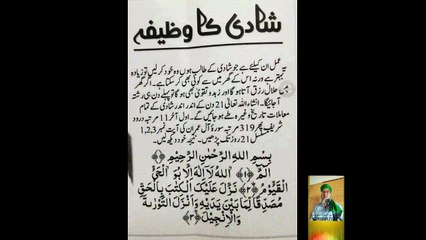 شادی کا وظیفہ
یہ عمل ان کیلئے ہے جو شادی کے طالب ہوں وہ خود کر لیں تو زیادہ
بہتر ہے ورنہ اس کے گھر میں سے کوئی بھی کر سکتا ہے۔ اگر گھر
میں حلال رزق آتا ہو گا اور زہد و تقویٰ بھی ہو گا تو پہلے دن ہی رشتہ
آجائیگا۔ انشاءاللہ تعالیٰ 21 دن کے اندر اندر شادی کے تمام
معاملات تاریخ وغیرہ طے ہو جائیں گے۔ اول آخر 11 مرتبہ درود
شریف پھر 319 مرتبہ سورۃ آل عمران کی آیت نمبر 1,2,3
مسلسل 21 روز تک پڑھیں۔ نتیجہ خود دیکھ لیں۔
بِسْمِ اللهِ الرَّحْمٰنِ الرَّحِیْمِ
الٓمّٓ ﴿۱﴾ اللهُ لَاۤ اِلٰهَ اِلَّا هُوَ الْحَیُّ
الْقَیُّوْمُ ﴿۲﴾ نَزَّلَ عَلَیْكَ الْكِتٰبَ بِالْحَقِّ
مُصَدِّقًا لِّمَا بَیْنَ یَدَیْهِ وَاَنْزَلَ التَّوْرٰىةَ
وَالْاِنْجِیْلَ ﴿۳﴾